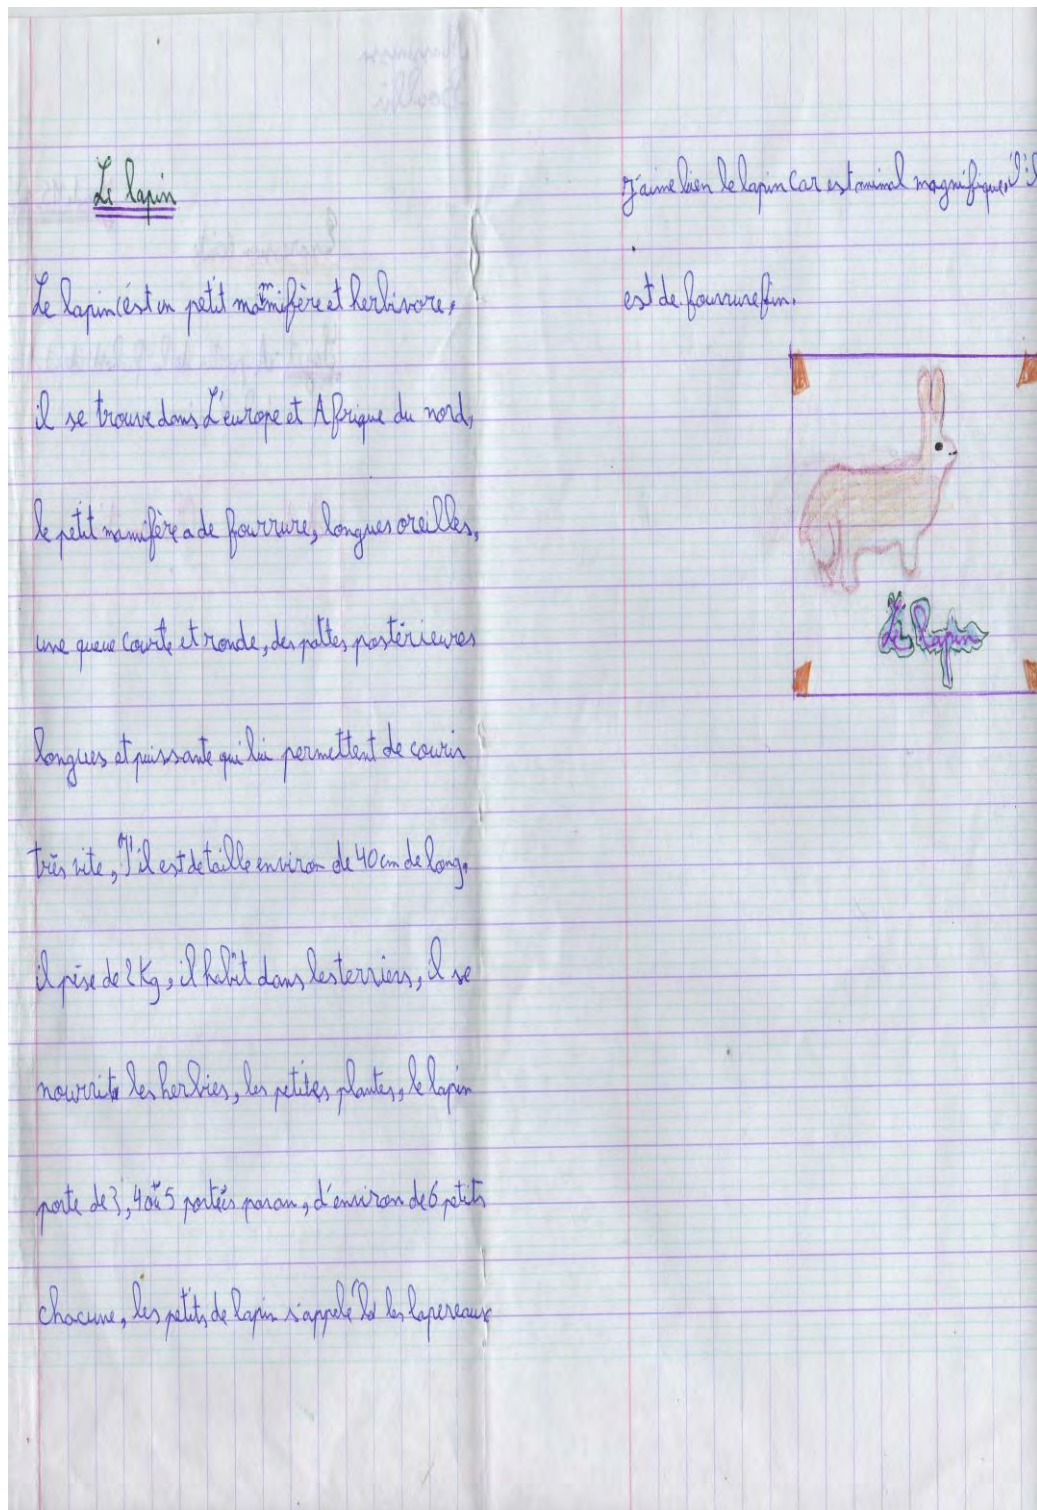 Le lapin
Le lapin c'ést un petit mammifère et herbivore,
il se trouve dans L'europe et Afrique du nord,
le petit mamifère a de fourrure, longues oreilles,
une queue courte et ronde, des pattes postérieures
longues et puissante qui lui permettent de courir
très vite, J'il est de taille environ de 40 cm de long.
il pèse de 2 Kg, il habit dans les terriers, il se
nourrit les herbies, les petites plantes, le lapin
porte de 3, 4 où 5 portées par an, d'environ de 6 petits
chacune, les petits de lapin s'appelé les lapereaux
J'aime bien le lapin car est animal magnifique,
est de fourrure fin.
Le Lapin